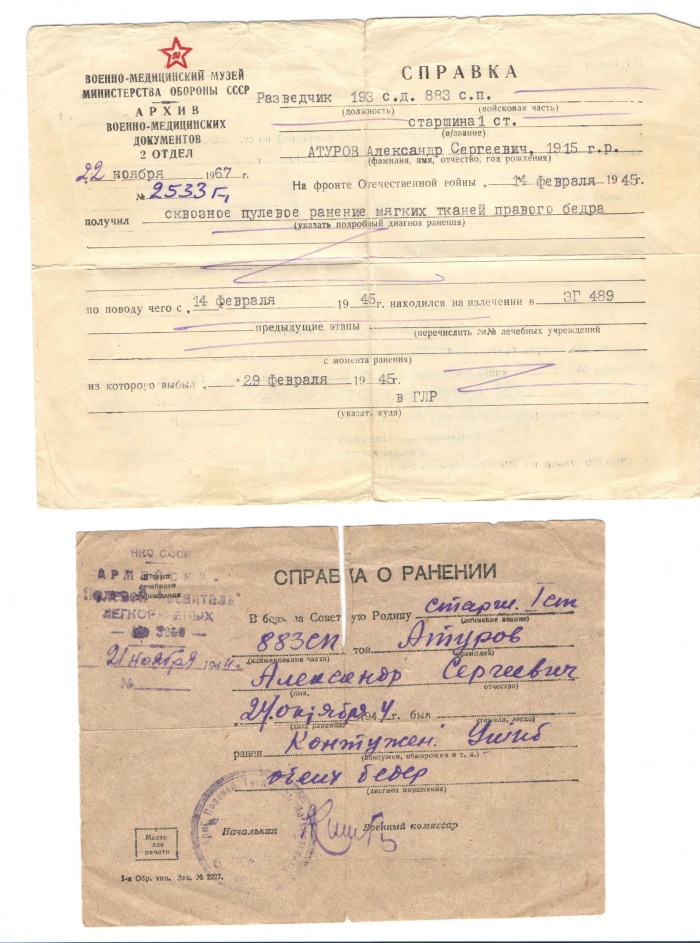 ВОЕННО-МЕДИЦИНСКИЙ МУЗЕЙ
МИНИСТЕРСТВА ОБОРОНЫ СССР
АРХИВ
ВОЕННО-МЕДИЦИНСКИХ
ДОКУМЕНТОВ
2 ОТДЕЛ
22 ноября 1967 г.
№ 2533 г,
СПРАВКА
Разведчик 193 с.д. 883 с.п.
(должность) (войсковая часть)
старшина 1 ст.
(звание)
АТУРОВ Александр Сергеевич, 1915 г.р.
(фамилия, имя, отчество, год рождения)
На фронте Отечественной войны „ 14 февраля 1945г.
получил сквозное пулевое ранение мягких тканей правого бедра
(указать подробный диагноз ранения)
по поводу чего с „ 14 февраля 1945г. находился на излечении в ЭГ 489
предыдущие этапы (перечислить №№ лечебных учреждений
с момента ранения)
из которого выбыл „ 29 февраля 1945г.
в ГЛР
(указать куда)
НКО СССР
ЛЕГКОРАНЕНЫХ
21 ноября 1944 г.
№
СПРАВКА О РАНЕНИИ
В боях за Советскую Родину старш. I ст
(воинское звание)
883 СП тов Атуров
(наименование части) (фамилия)
Александр Сергеевич
(имя, отчество)
24 октября 1944 г. был
(дата ранения) (тяжело, легко)
ранен Контужен. Ушиб
(контужен, обморожен и т. д.)
обеих бедер
(диагноз поражения)
Начальник Военный комиссар
Место
для
печати
1-я Обр. тип. Зак. № 2227.